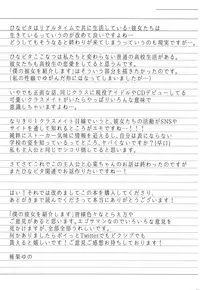 ひなビタはリアルタイムで共に生活している・彼女たちは
生きているっていうのが改めて良いですよね…
どうしてもそうなると終わりが来てしまうっていうのも現実ですが…。
ひなビタこなつは私たちと変わらない普通の高校生活がある。
彼女たちも高校生の恋愛をしてると思うんです。
「僕の彼女を紹介します」はそういう部分を描きたかったのです。
（私の性癖でゆがんだ形にはなってしまいましたが…）
いやでも正直な話、同じクラスに現役アイドルやCDデビューしてる
可愛いクラスメイトがいたらやっぱりいろんな意味で
意識しちゃいますよね…。
なりきり！クラスメイト目線でいうと、彼女たちの活動がSNSや
サイトを通して知れるところがエモですね～！！！
純粋にストーカー気味に情報を追えるし、自分は表にならない
学校の姿を知っているってところ、ヤバくないですか？（早口）
私も主人公と同じでシコり倒してると思います。
さてさてこれでこの主人公と心菜ちゃんのお話は終わったのですが
まだひなビタ関連でお話作りたいですね～！
はい！それでは改めましてこの本を購入してくださり、
あとがきまで読んでくださって本当にありがとうございます！
「僕の彼女を紹介します」皆様色々なとらえ方や
ご意見があると思います。エゴサマンなのでいろいろな意見を
見かけますが、全部全部うれしいです。
何かありましたらポイっとTwitterでもピクシブでも
貰えると嬉しいです！ご意見ご感想お待ちしております！